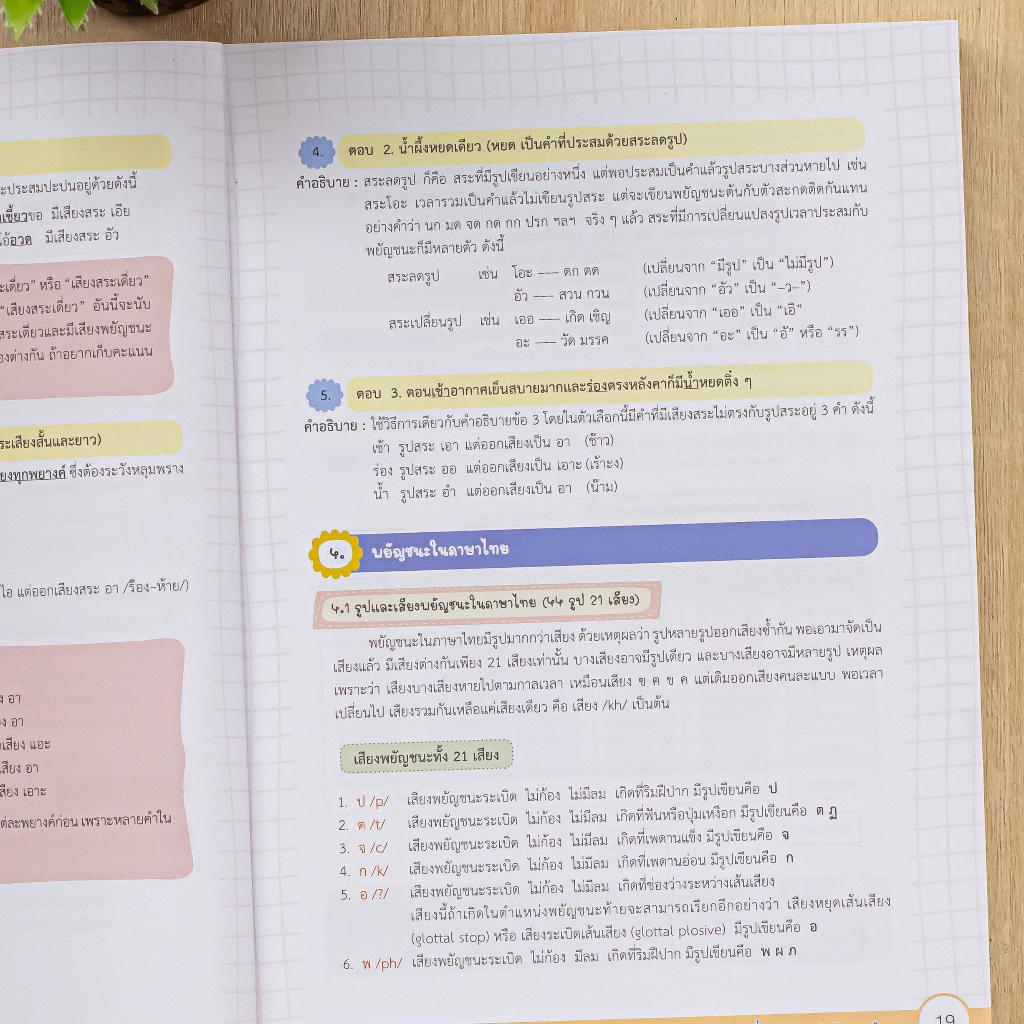 ะประสมปะปนอยู่ด้วยดังนี้
เขี้ยวขอ มีเสียงสระ เอีย
โอ้อวด มีเสียงสระ อัว
ะเดี่ยว” หรือ “เสียงสระเดี่ยว”
“เสียงสระเดี่ยว” อันนี้จะนับ
สระเดี่ยวและมีเสียงพยัญชนะ
องต่างกัน ถ้าอยากเก็บคะแนน
ระเสียงสั้นและยาว)
ยงทุกพยางค์ ซึ่งต้องระวังหลุมพราง
ไอ แต่ออกเสียงสระ อา /ร๊อง-ห้าย/)
ง อา
ยง อา
เสียง แอะ
เสียง อา
สียง เอาะ
ต่ละพยางค์ก่อน เพราะหลายคำใน
4. ตอบ 2. น้ำผึ้งหยดเดียว (หยด เป็นคำที่ประสมด้วยสระลดรูป)
คำอธิบาย : สระลดรูป ก็คือ สระที่มีรูปเขียนอย่างหนึ่ง แต่พอประสมเป็นคำแล้วรูปสระบางส่วนหายไป เช่น
สระโอะ เวลารวมเป็นคำแล้วไม่เขียนรูปสระ แต่จะเขียนพยัญชนะต้นกับตัวสะกดติดกันแทน
อย่างคำว่า นก มด จด กด กก ปรก ฯลฯ จริง ๆ แล้ว สระที่มีการเปลี่ยนแปลงรูปเวลาประสมกับ
พยัญชนะก็มีหลายตัว ดังนี้
สระลดรูป เช่น โอะ --- ตก ตด (เปลี่ยนจาก “มีรูป” เป็น “ไม่มีรูป”)
อัว --- สวน กวน (เปลี่ยนจาก “อัว” เป็น “-ว-”)
สระเปลี่ยนรูป เช่น เออ --- เกิด เชิญ (เปลี่ยนจาก “เออ” เป็น “เอิ”
อะ --- วัด มรรค (เปลี่ยนจาก “อะ” เป็น “อั” หรือ “รร”)
5. ตอบ 3. ตอนเช้าอากาศเย็นสบายมากและร่องตรงหลังคาก็มีน้ำหยดติ๋ง ๆ
คำอธิบาย : ใช้วิธีการเดียวกับคำอธิบายข้อ 3 โดยในตัวเลือกนี้มีคำที่มีเสียงสระไม่ตรงกับรูปสระอยู่ 3 คำ ดังนี้
เช้า รูปสระ เอา แต่ออกเสียงเป็น อา (ช๊าว)
ร่อง รูปสระ ออ แต่ออกเสียงเป็น เอาะ (เร้าะง)
น้ำ รูปสระ อำ แต่ออกเสียงเป็น อา (น๊าม)
๔. พยัญชนะในภาษาไทย
๔.1 รูปและเสียงพยัญชนะในภาษาไทย (๔๔ รูป 21 เสียง)
พยัญชนะในภาษาไทยมีรูปมากกว่าเสียง ด้วยเหตุผลว่า รูปหลายรูปออกเสียงซ้ำกัน พอเอามาจัดเป็น
เสียงแล้ว มีเสียงต่างกันเพียง 21 เสียงเท่านั้น บางเสียงอาจมีรูปเดียว และบางเสียงอาจมีหลายรูป เหตุผล
เพราะว่า เสียงบางเสียงหายไปตามกาลเวลา เหมือนเสียง ฃ ฅ ข ค แต่เดิมออกเสียงคนละแบบ พอเวลา
เปลี่ยนไป เสียงรวมกันเหลือแค่เสียงเดียว คือ เสียง /kh/ เป็นต้น
เสียงพยัญชนะทั้ง 21 เสียง
1. ป /p/ เสียงพยัญชนะระเบิด ไม่ก้อง ไม่มีลม เกิดที่ริมฝีปาก มีรูปเขียนคือ ป
2. ต /t/ เสียงพยัญชนะระเบิด ไม่ก้อง ไม่มีลม เกิดที่ฟันหรือปุ่มเหงือก มีรูปเขียนคือ ต ฏ
3. จ /c/ เสียงพยัญชนะระเบิด ไม่ก้อง ไม่มีลม เกิดที่เพดานแข็ง มีรูปเขียนคือ จ
4. ก /k/ เสียงพยัญชนะระเบิด ไม่ก้อง ไม่มีลม เกิดที่เพดานอ่อน มีรูปเขียนคือ ก
5. อ /?/ เสียงพยัญชนะระเบิด ไม่ก้อง ไม่มีลม เกิดที่ช่องว่างระหว่างเส้นเสียง
เสียงนี้ถ้าเกิดในตำแหน่งพยัญชนะท้ายจะสามารถเรียกอีกอย่างว่า เสียงหยุดเส้นเสียง
(glottal stop) หรือ เสียงระเบิดเส้นเสียง (glottal plosive) มีรูปเขียนคือ อ
6. พ /ph/ เสียงพยัญชนะระเบิด ไม่ก้อง มีลม เกิดที่ริมฝีปาก มีรูปเขียนคือ พ ผ ภ
19